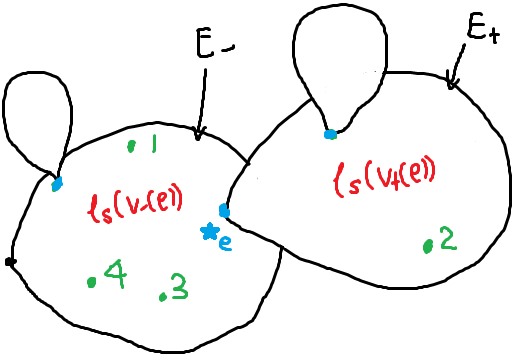 E-
E+
1
ls(v-(e))
ls(v+(e))
e
2
4
3